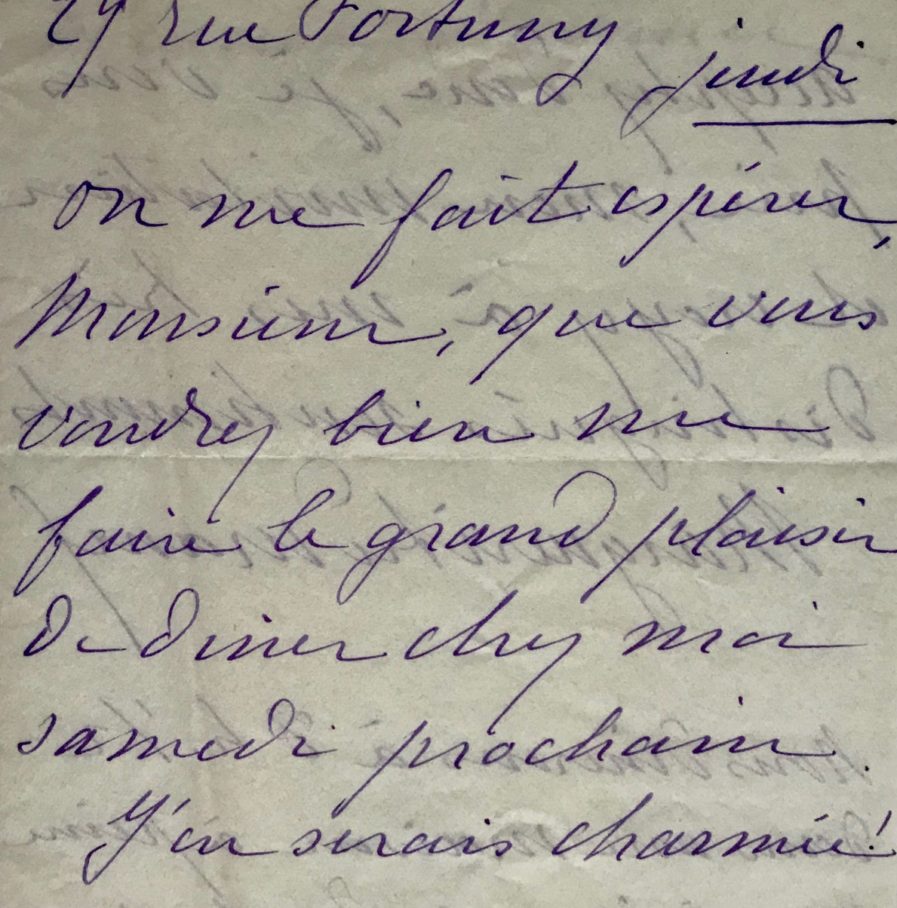 29 rue Fortuny
jeudi
on me fait espérer,
Monsieur, que vous
voudrez bien me
faire le grand plaisir
de diner chez moi
samedi prochain.
J'en serais charmée!